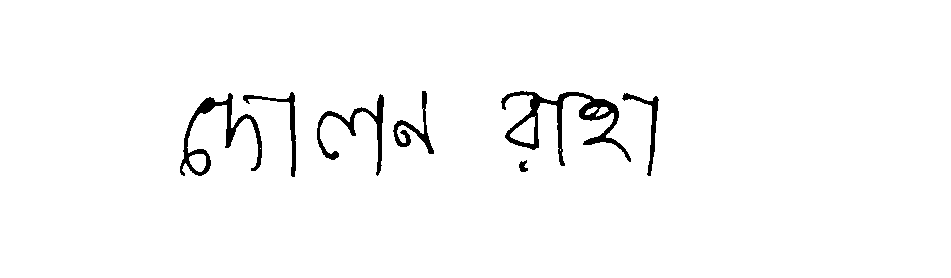 দোলন রাহা